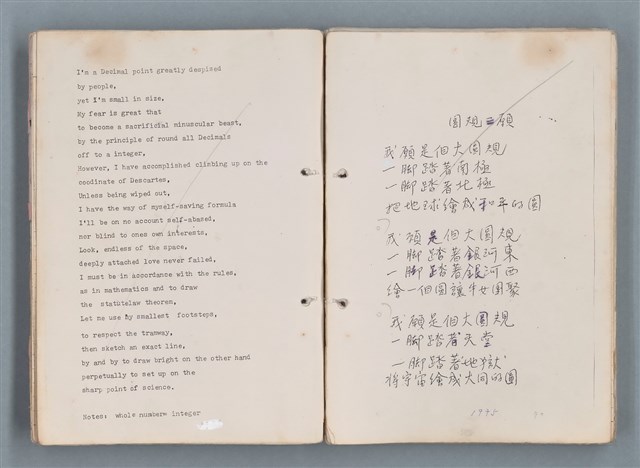 I'm a Decimal point greatly despised
by people,
yet I'm small in size,
My fear is great that
to become a sacrificial minuscular beast,
by the principle of round all Decimals
off to a integer,
However, I have accomplished climbing up on the
coodinate of Descartes,
Unless being wiped out,
I have the way of myself-saving formula
I'll be on no account self-abased,
nor blind to ones own interests,
Look, endless of the space,
deeply attached love never failed,
I must be in accordance with the rules,
as in mathematics and to draw
the statutelaw theorem,
Let me use by smallest footsteps,
to respect the tramway,
then sketch an exact line,
by and by to draw bright on the other hand
perpetually to set up on the
sharp point of science.
Notes: whole number= integer
圓規三願
我願是個大圓規
一腳踏著南極
一腳踏著北極
把地球繪成和平的圓
我願是個大圓規
一腳踏著銀河東
一腳踏著銀河西
繪一個圓讓牛女團聚
我願是個大圓規
一腳踏著天堂
一腳踏著地獄
將宇宙繪成大同的圓
1995